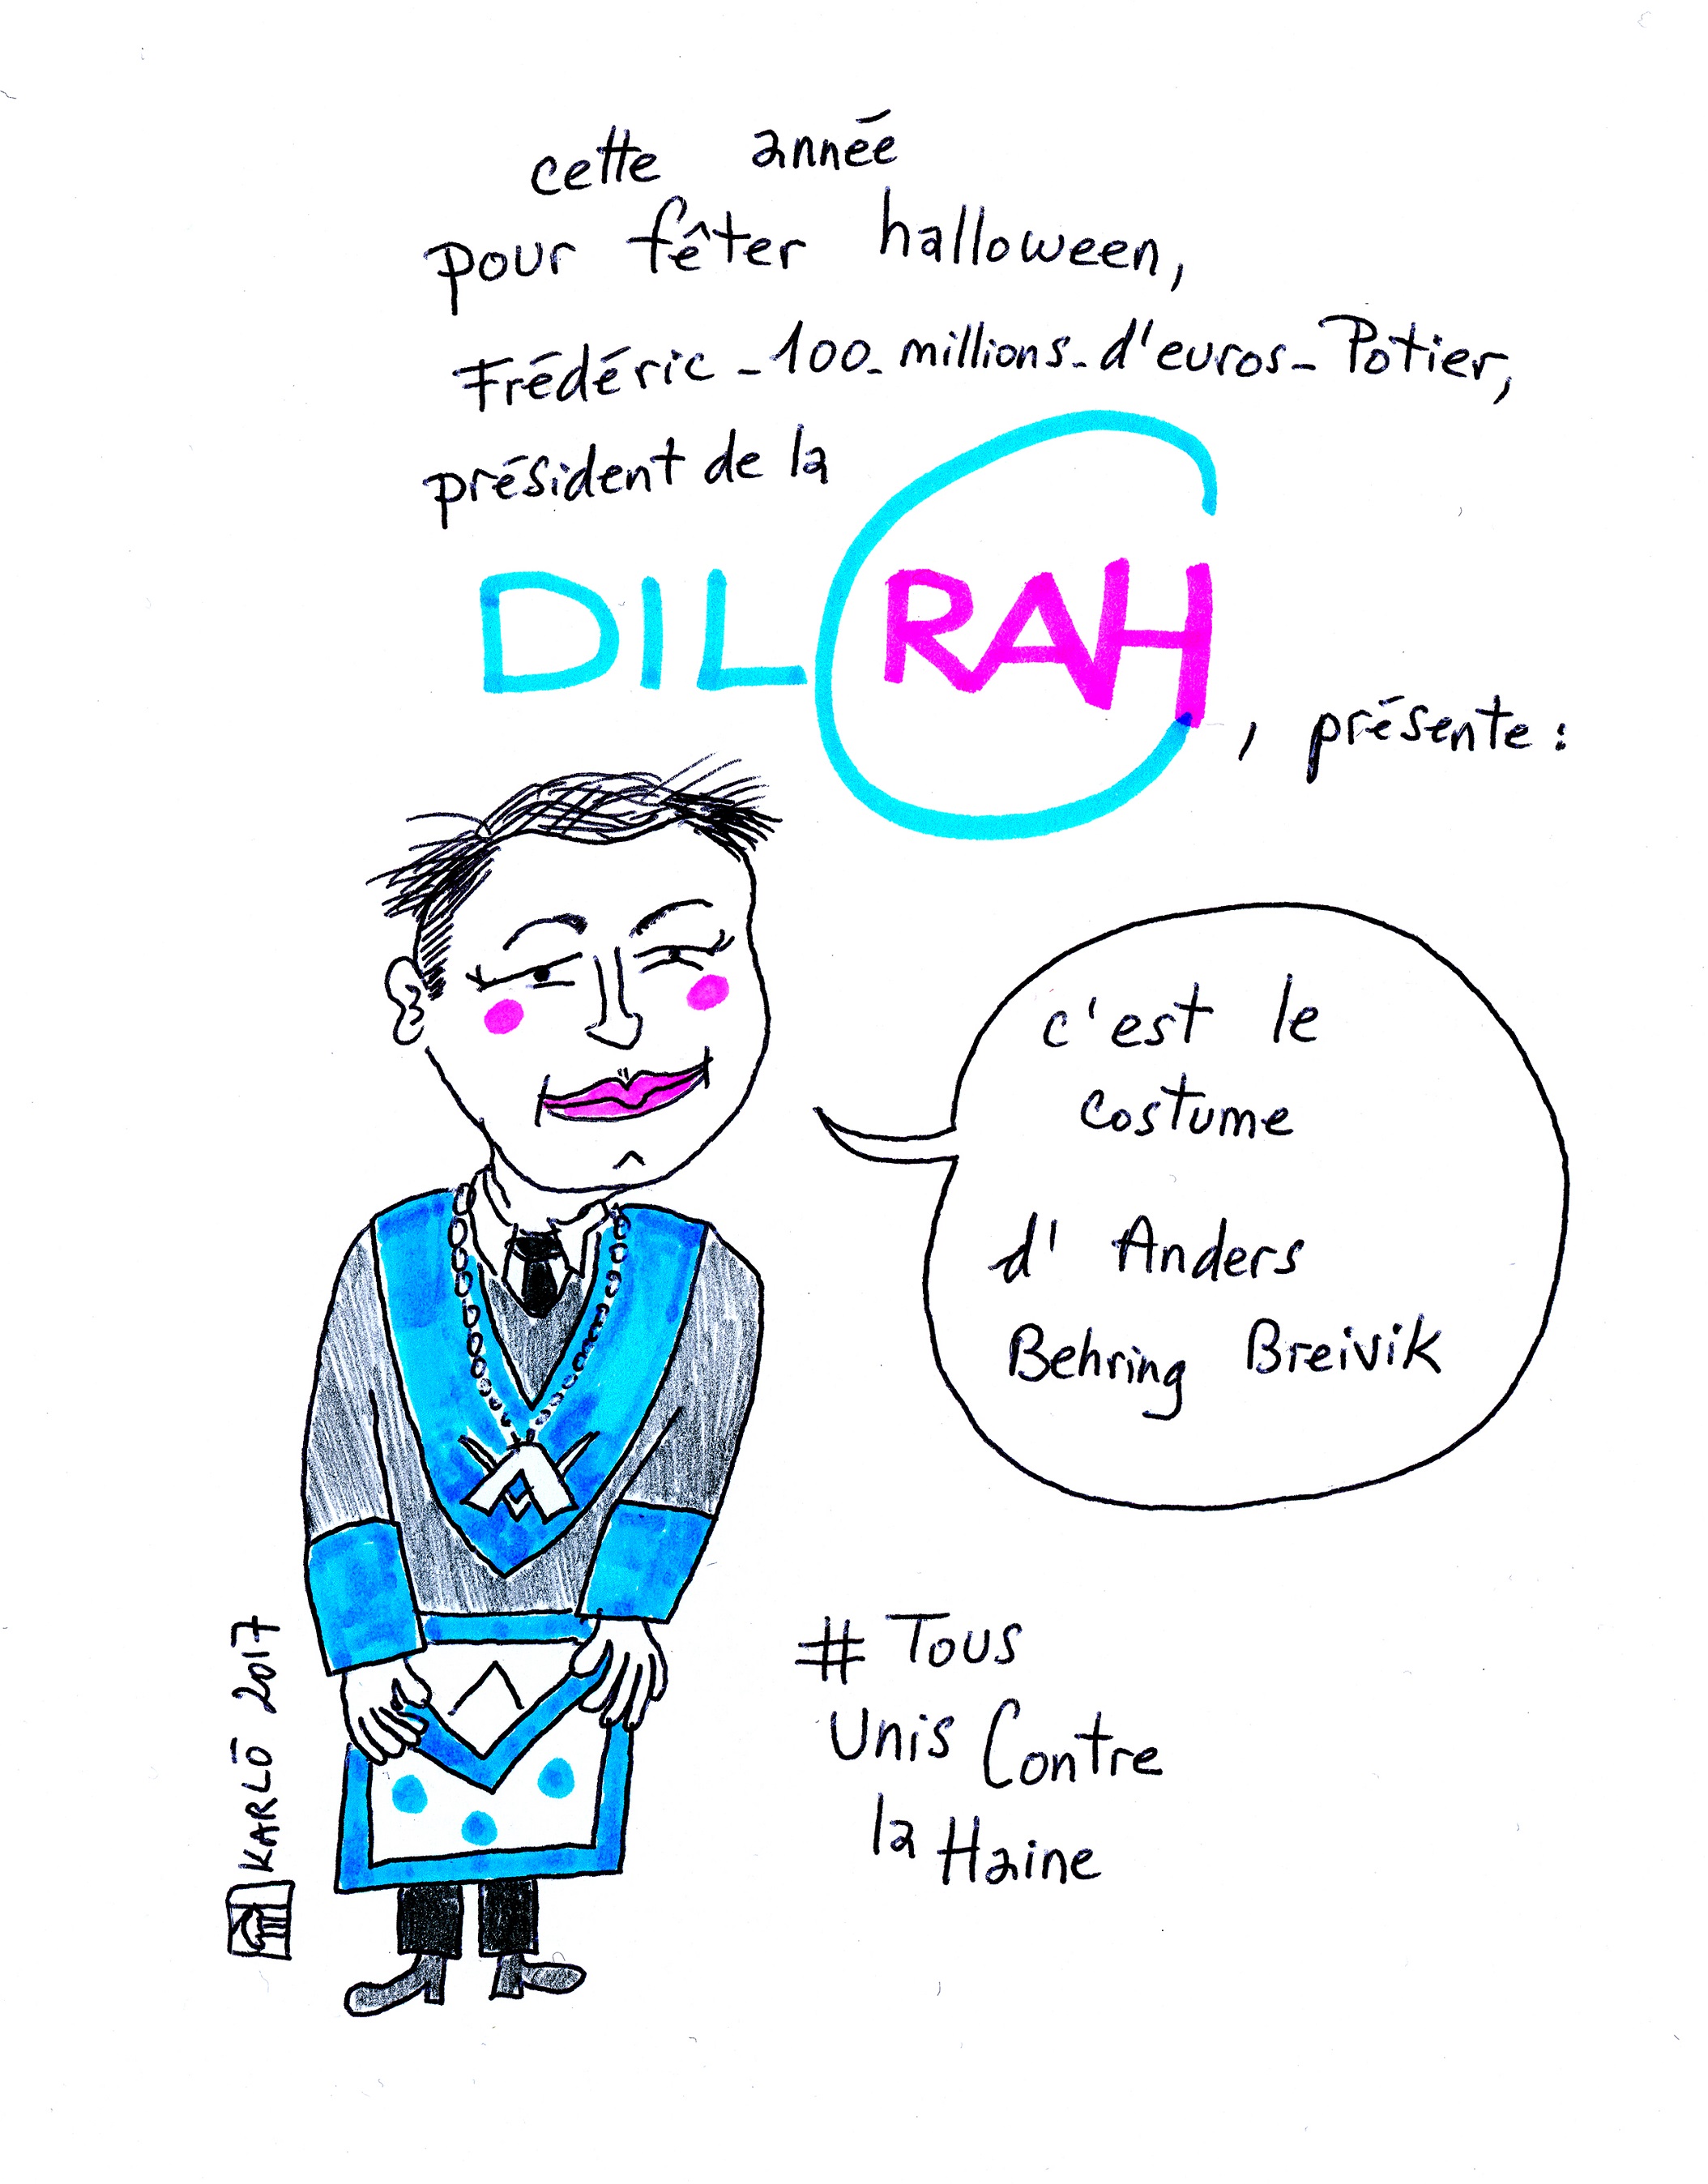 cette année
pour fêter halloween,
Frédéric_100_millions_d'euros_Potier,
président de la
DILCRAH, présente :
c'est le
costume
d'Anders
Behring Breivik
# Tous
Unis Contre
la Haine
KARLÖ 2017